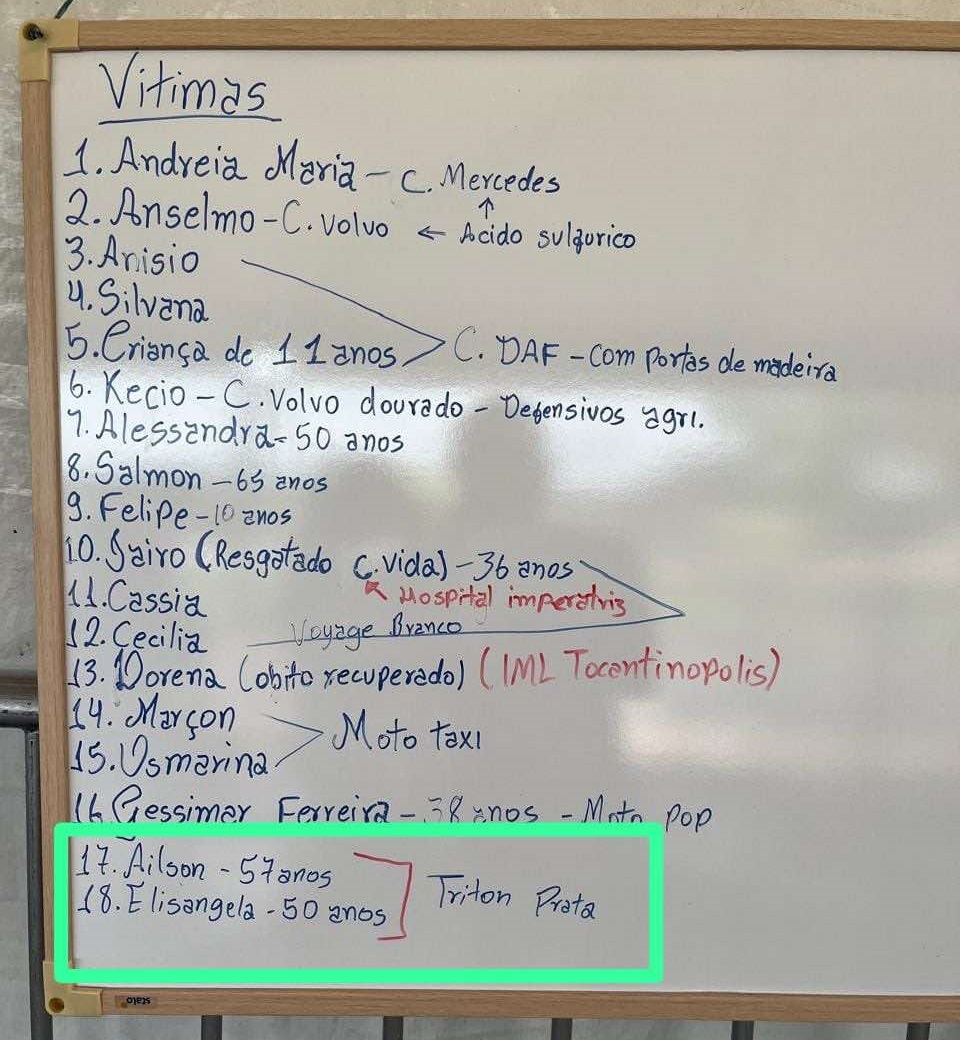 Vitimas
1. Andreia Maria - C. Mercedes
2. Anselmo - C. Volvo ← Acido sulfurico
3. Anisio
4. Silvana
5. Criança de 11 anos > C. DAF - com portas de madeira
6. Kecio - C. Volvo dourado - Defensivos agri.
7. Alessandra - 50 anos
8. Salmon - 65 anos
9. Felipe - 10 anos
10. Jairo (Resgatado c. vida) - 36 anos
11. Cassia Hospital imperatriz
12. Cecilia Voyage Branco
13. Lorena (obito recuperado) (IML Tocantinopolis)
14. Marçon
Moto taxi
15. Osmarina
16. Gessimar Ferreira - 38 anos - Moto pop
17. Ailson - 57 anos
18. Elisangela - 50 anos ] Triton Prata
stalo